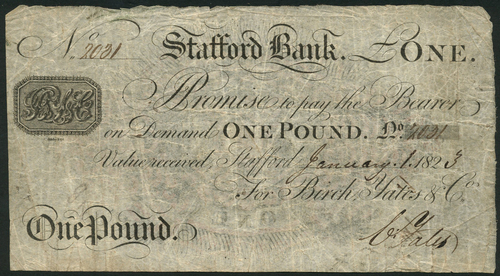 No. 2031 Stafford Bank. £ONE.
I Promise to pay the Bearer
on Demand ONE POUND. No. 2031
Value received, Stafford January 1. 1823
For Birch, Yates & Co.
One Pound.
Yates